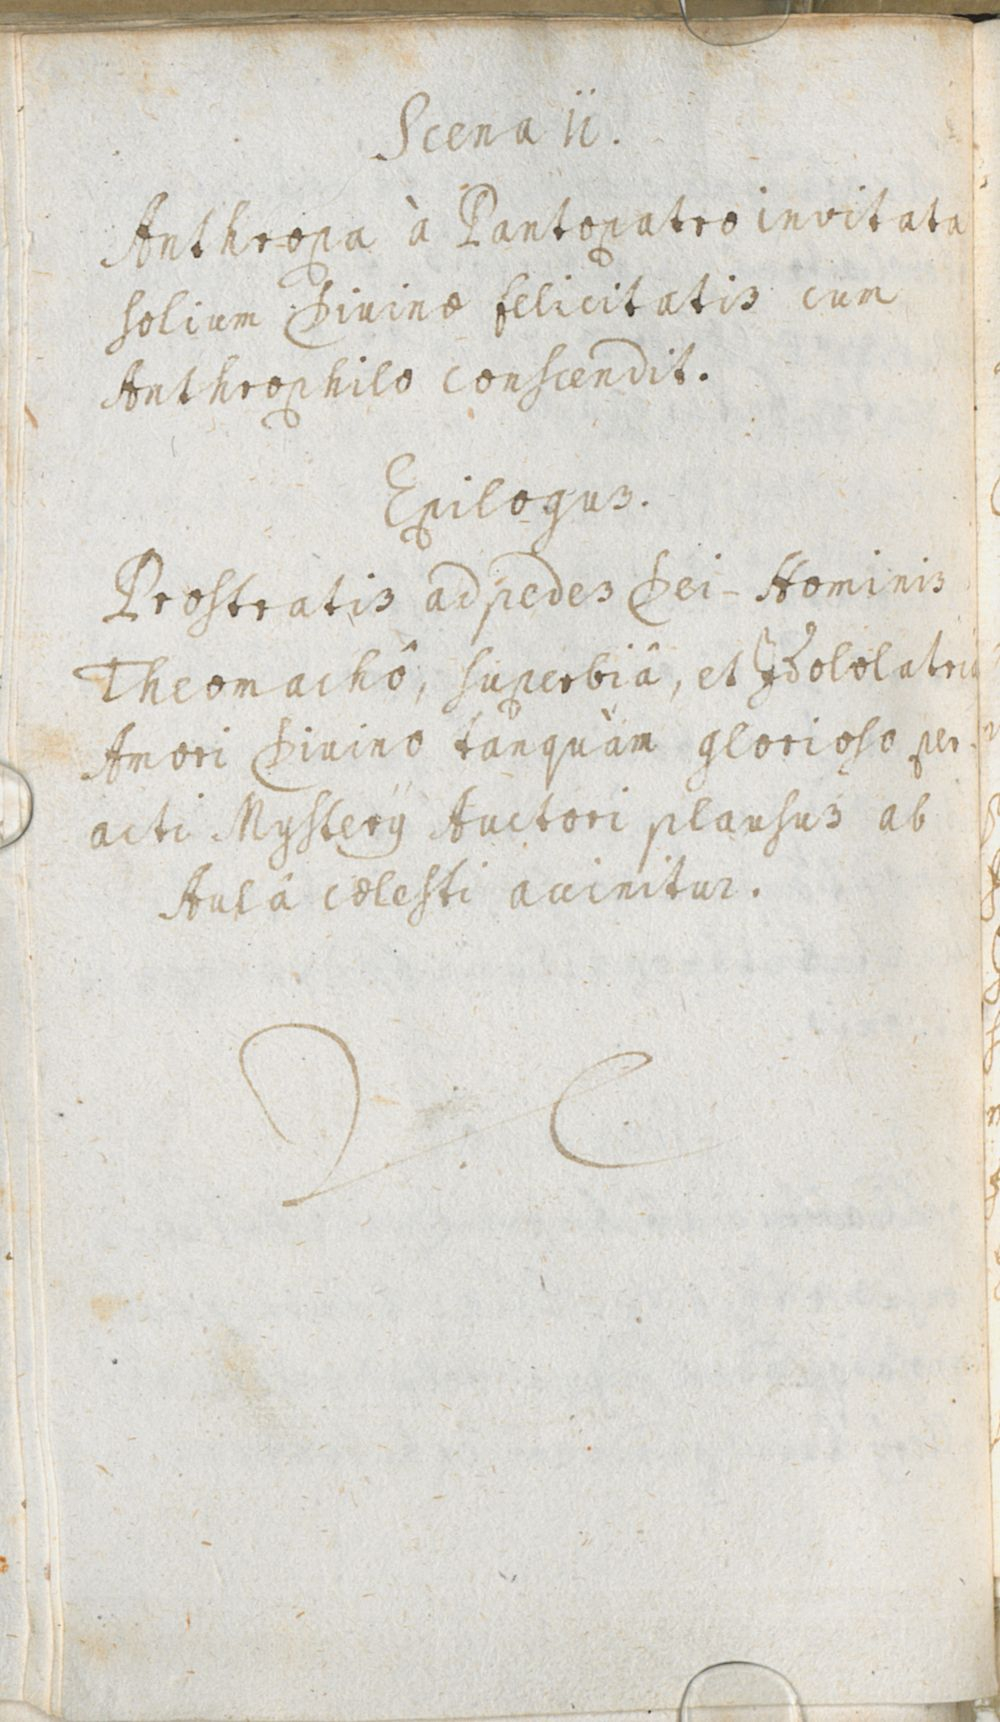 Scena ii.
Anthropa à Pantopatro invitata
solium Divinæ felicitatis cum
Anthrophilo conscendit.
Epilogus.
Prostratis ad pedes Dei-Hominis
Theomachô, superbiâ, et Idololatriâ
Amori Divino tanquàm glorioso per-
acti Mysterÿ Auctori plausus ab
Aulâ cælesti accinitur.